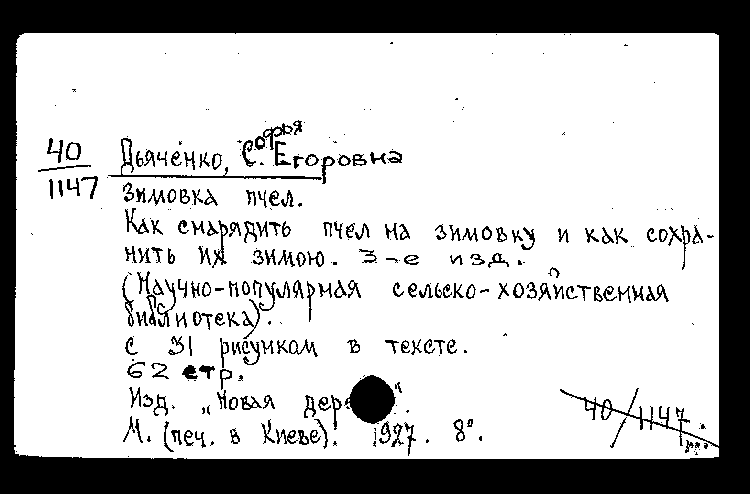 40
1147
Дьяченко, Софья Егоровна
Зимовка пчел.
Как снарядить пчел на зимовку и как сохра-
нить их зимою. 3-е изд.
(Научно-популярная сельско-хозяйственная
библиотека).
с 31 рисунком в тексте.
62 стр.
Изд. „Новая дере
М. (печ. в Киеве). 1927. 8°.
40/1147.